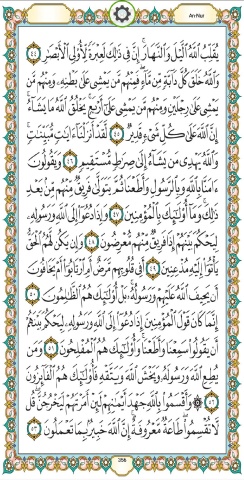 An-Nur
يُقَلِّبُ اللَّهُ الَّيْلَ وَالنَّهَارَ ۚ إِنَّ فِي ذَٰلِكَ لَعِبْرَةً لِّأُولِي الْأَبْصَارِ ٤٤
وَاللَّهُ خَلَقَ كُلَّ دَابَّةٍ مِّن مَّاءٍ ۖ فَمِنْهُم مَّن يَمْشِي عَلَىٰ بَطْنِهِ وَمِنْهُم مَّن
يَمْشِي عَلَىٰ رِجْلَيْنِ وَمِنْهُم مَّن يَمْشِي عَلَىٰ أَرْبَعٍ ۚ يَخْلُقُ اللَّهُ مَا يَشَاءُ ۚ
إِنَّ اللَّهَ عَلَىٰ كُلِّ شَيْءٍ قَدِيرٌ ٤٥ لَّقَدْ أَنزَلْنَا آيَاتٍ مُّبَيِّنَاتٍ ۚ
وَاللَّهُ يَهْدِي مَن يَشَاءُ إِلَىٰ صِرَاطٍ مُّسْتَقِيمٍ ٤٦ وَيَقُولُونَ
آمَنَّا بِاللَّهِ وَبِالرَّسُولِ وَأَطَعْنَا ثُمَّ يَتَوَلَّىٰ فَرِيقٌ مِّنْهُم مِّن بَعْدِ
ذَٰلِكَ ۚ وَمَا أُولَٰئِكَ بِالْمُؤْمِنِينَ ٤٧ وَإِذَا دُعُوا إِلَى اللَّهِ وَرَسُولِهِ
لِيَحْكُمَ بَيْنَهُمْ إِذَا فَرِيقٌ مِّنْهُم مُّعْرِضُونَ ٤٨ وَإِن يَكُن لَّهُمُ الْحَقُّ
يَأْتُوا إِلَيْهِ مُذْعِنِينَ ٤٩ أَفِي قُلُوبِهِم مَّرَضٌ أَمِ ارْتَابُوا أَمْ يَخَافُونَ
أَن يَحِيفَ اللَّهُ عَلَيْهِمْ وَرَسُولُهُ ۚ بَلْ أُولَٰئِكَ هُمُ الظَّالِمُونَ ٥٠
إِنَّمَا كَانَ قَوْلَ الْمُؤْمِنِينَ إِذَا دُعُوا إِلَى اللَّهِ وَرَسُولِهِ لِيَحْكُمَ بَيْنَهُمْ
أَن يَقُولُوا سَمِعْنَا وَأَطَعْنَا ۚ وَأُولَٰئِكَ هُمُ الْمُفْلِحُونَ ٥١ وَمَن
يُطِعِ اللَّهَ وَرَسُولَهُ وَيَخْشَ اللَّهَ وَيَتَّقْهِ فَأُولَٰئِكَ هُمُ الْفَائِزُونَ
٥٢ ۞ وَأَقْسَمُوا بِاللَّهِ جَهْدَ أَيْمَانِهِمْ لَئِنْ أَمَرْتَهُمْ لَيَخْرُجُنَّ ۖ قُل
لَّا تُقْسِمُوا ۖ طَاعَةٌ مَّعْرُوفَةٌ ۚ إِنَّ اللَّهَ خَبِيرٌ بِمَا تَعْمَلُونَ ٥٣
356